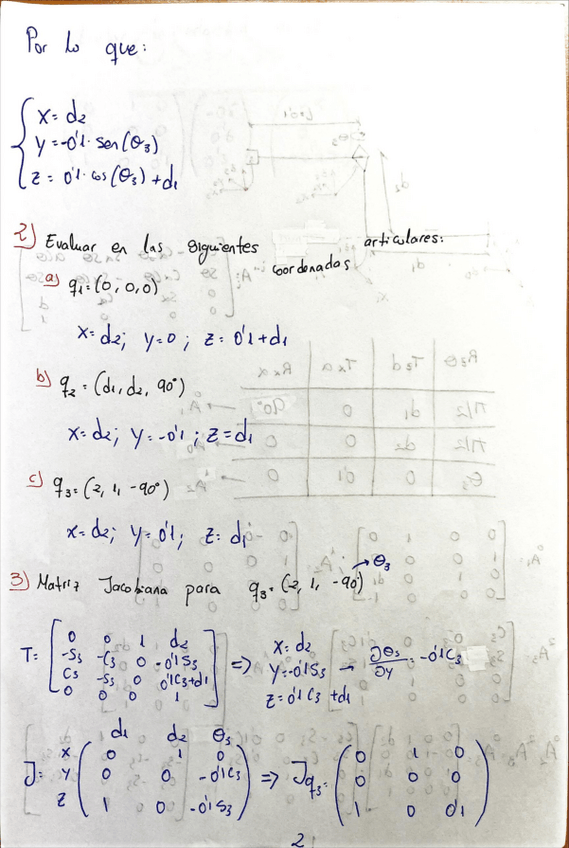 Por lo que:
x = d2
y = -0'1 · sen(θ3)
z = 0'1 · cos(θ3) + d1
2) Evaluar en las siguientes coordenadas articulares:
a) q1 = (0, 0, 0)
x = d2; y = 0; z = 0'1 + d1
b) q2 = (d1, d2, 90°)
x = d2; y = -0'1; z = d1
c) q3 = (2, 1, -90°)
x = d2; y = 0'1; z = d1
3) Matriz Jacobiana para q3 = (2, 1, -90°) → θ3
T = [0 0 1 d2
-S3 -C3 0 -0'1S3
C3 -S3 0 0'1C3+d1
0 0 0 1] ⇒ x = d2
y = -0'1S3 → ∂θ3/∂y = -0'1C3
z = 0'1C3 + d1
d1 d2 θ3
J = x (0 1 0
y 0 0 -0'1C3
z 1 0 -0'1S3) ⇒ Jq3 = (0 1 0
0 0 0
1 0 0'1)
2